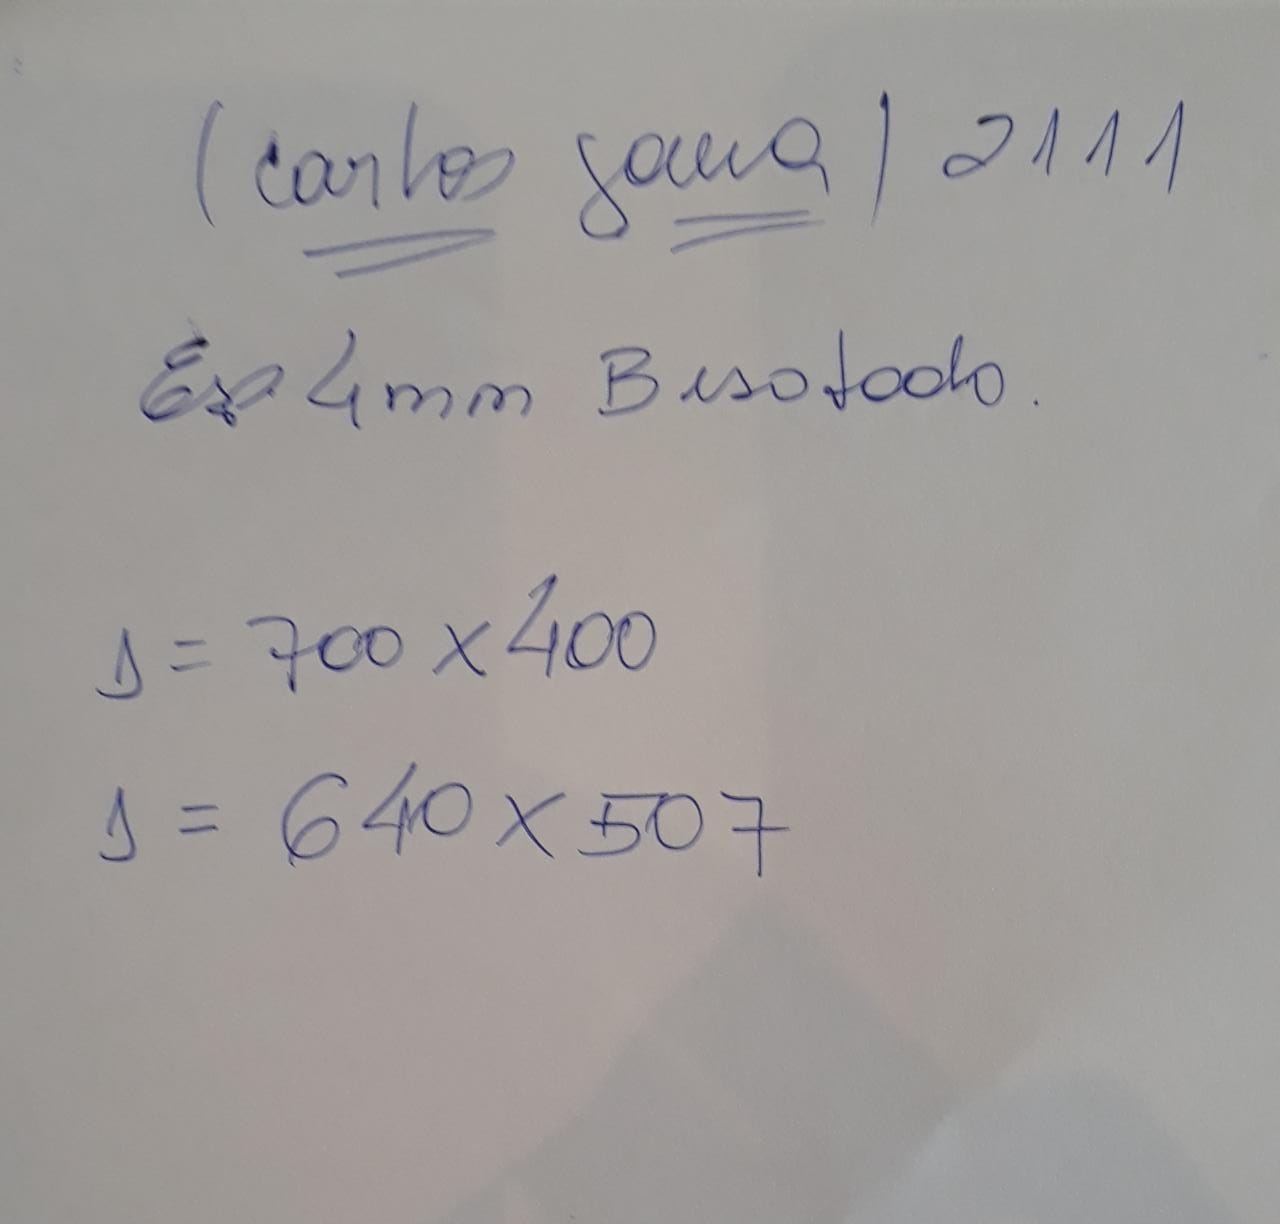 (Carlos Gama) 2111
Esp 4mm Bisotado.
1 = 700 x 400
1 = 640 x 507